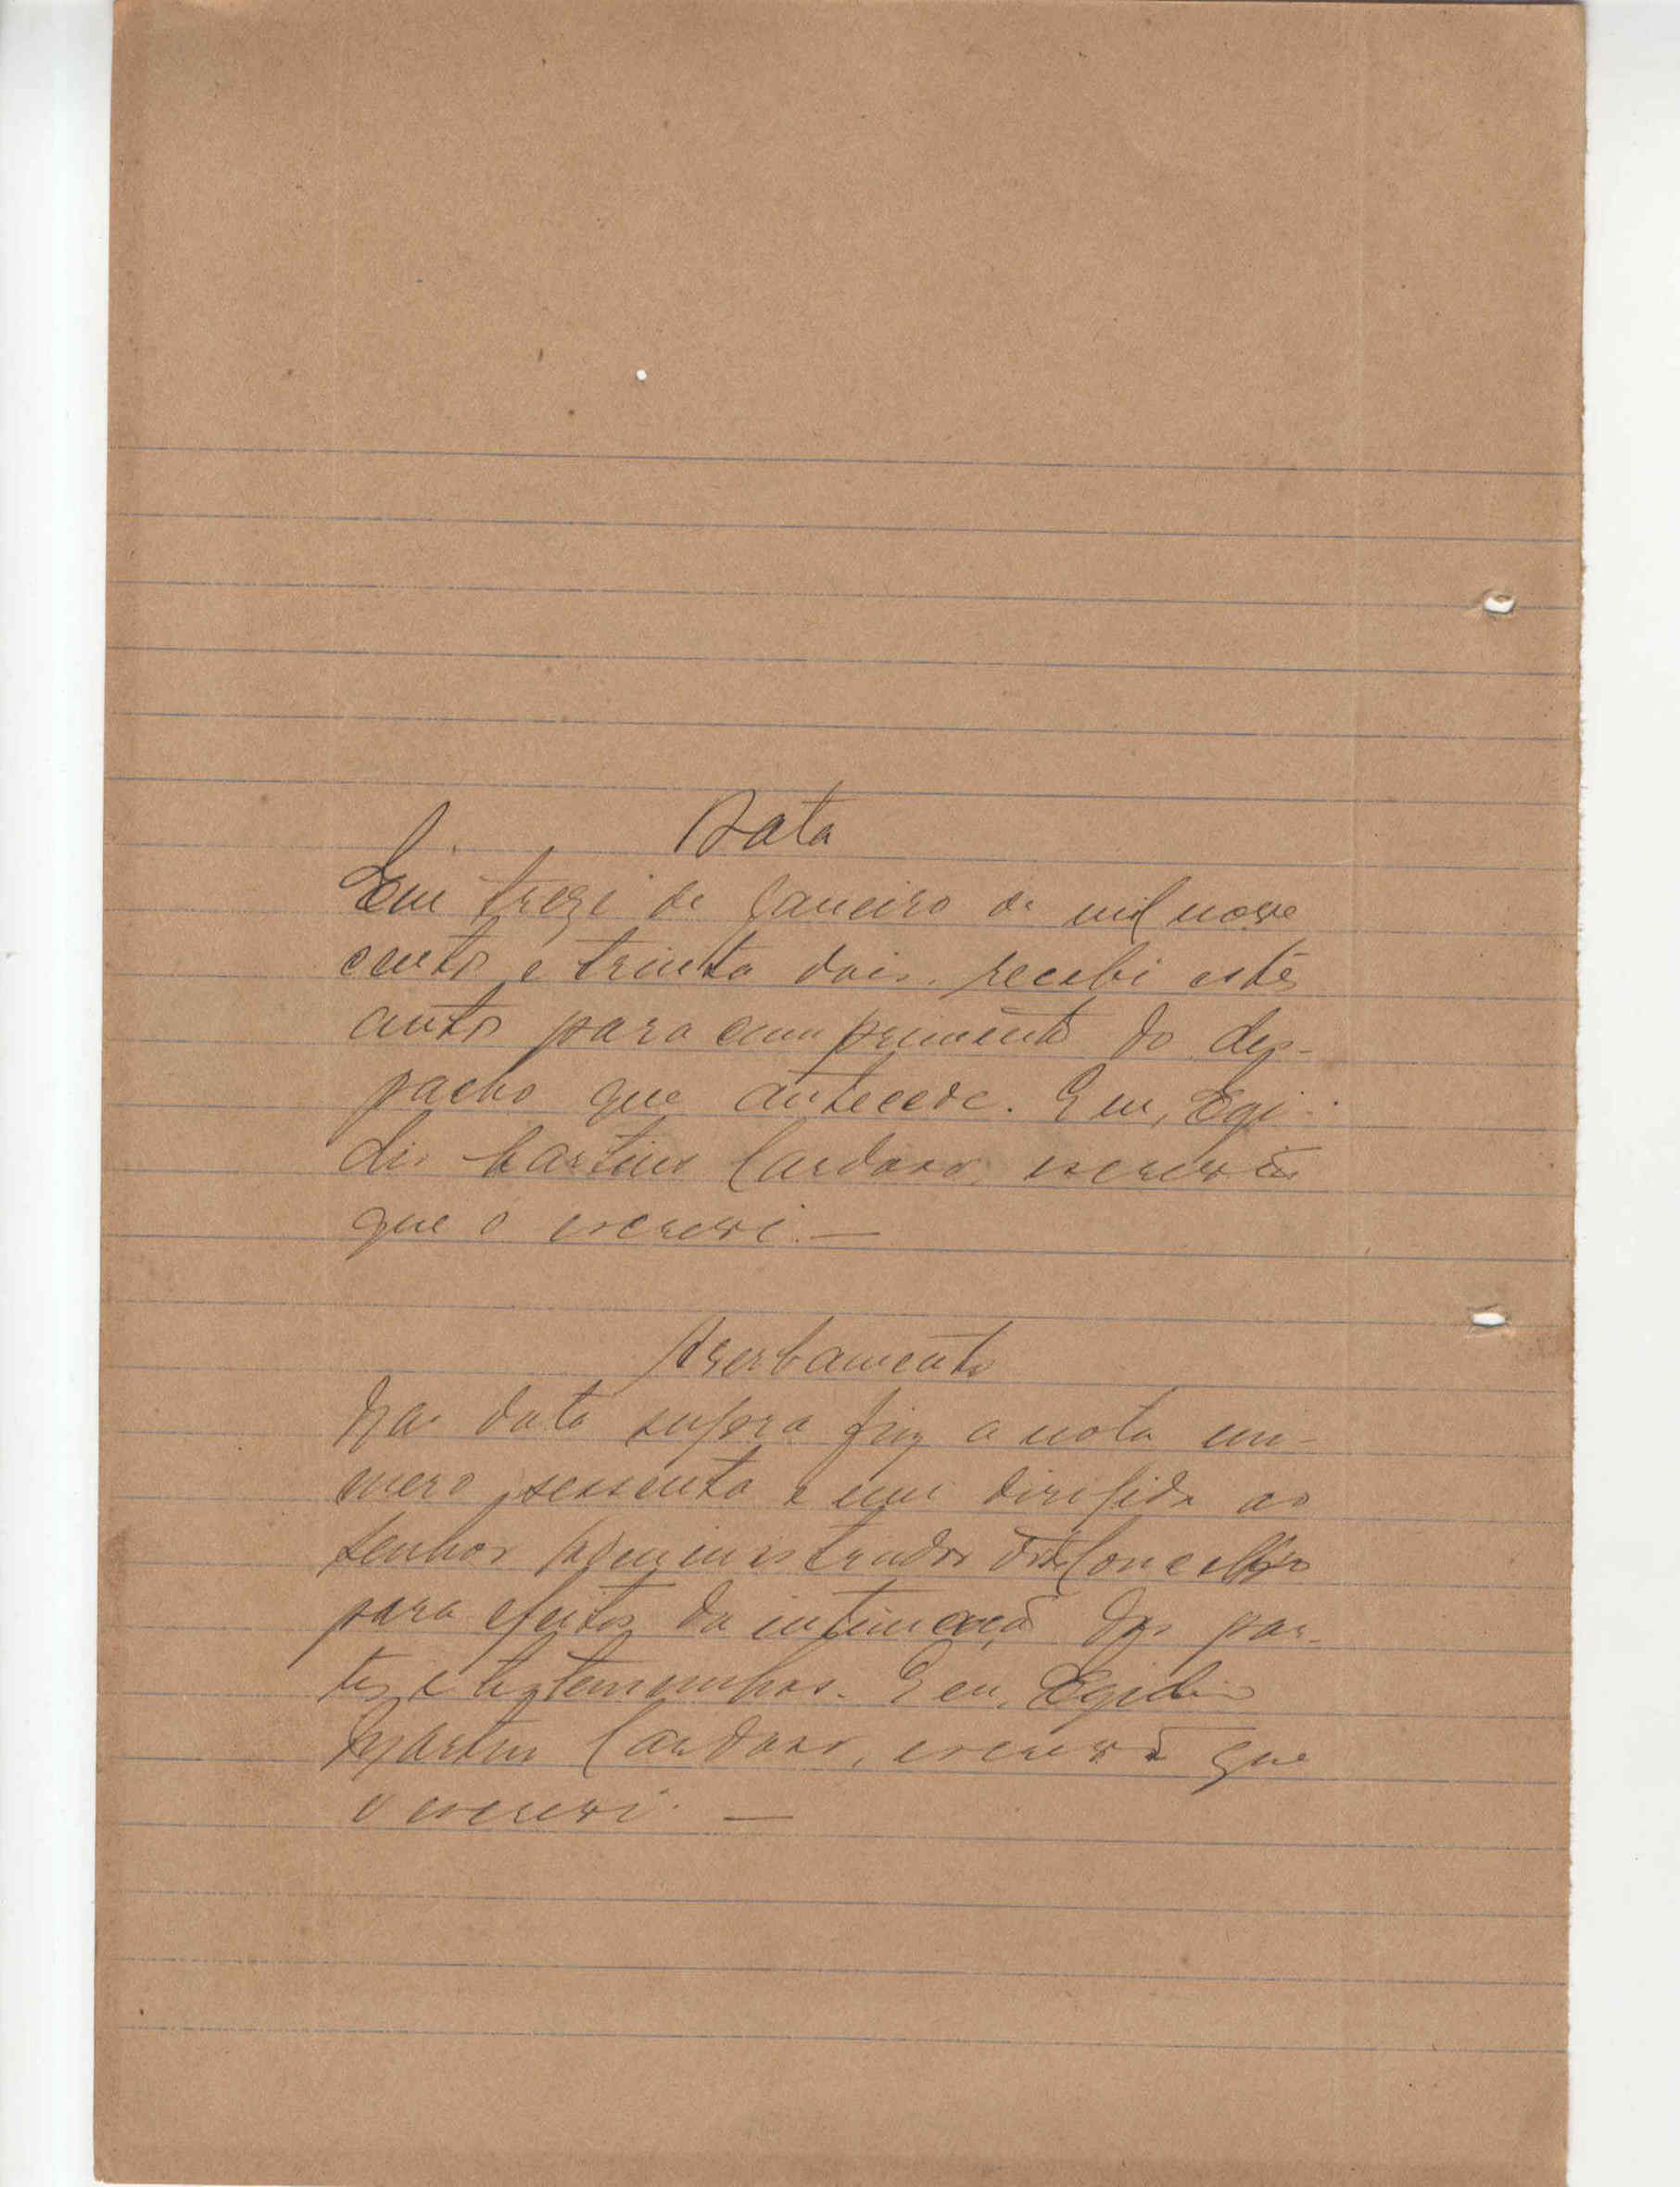 Data
Em treze de Janeiro de mil nove
cento e trinta dois, recebi estes
autos para cumprimento do des-
pacho que antecede. E eu, Egi-
dio Martins Cardoso, escrivão
que o escrevi. —
Averbamento
Na data supra fiz a nota nu-
mero sessenta e um dirigida ao
senhor Administrador do Concelho
para efeitos da intimação das par-
tes e testemunhas. E eu, Egidio
Martins Cardoso, escrivão que
o escrevi. —